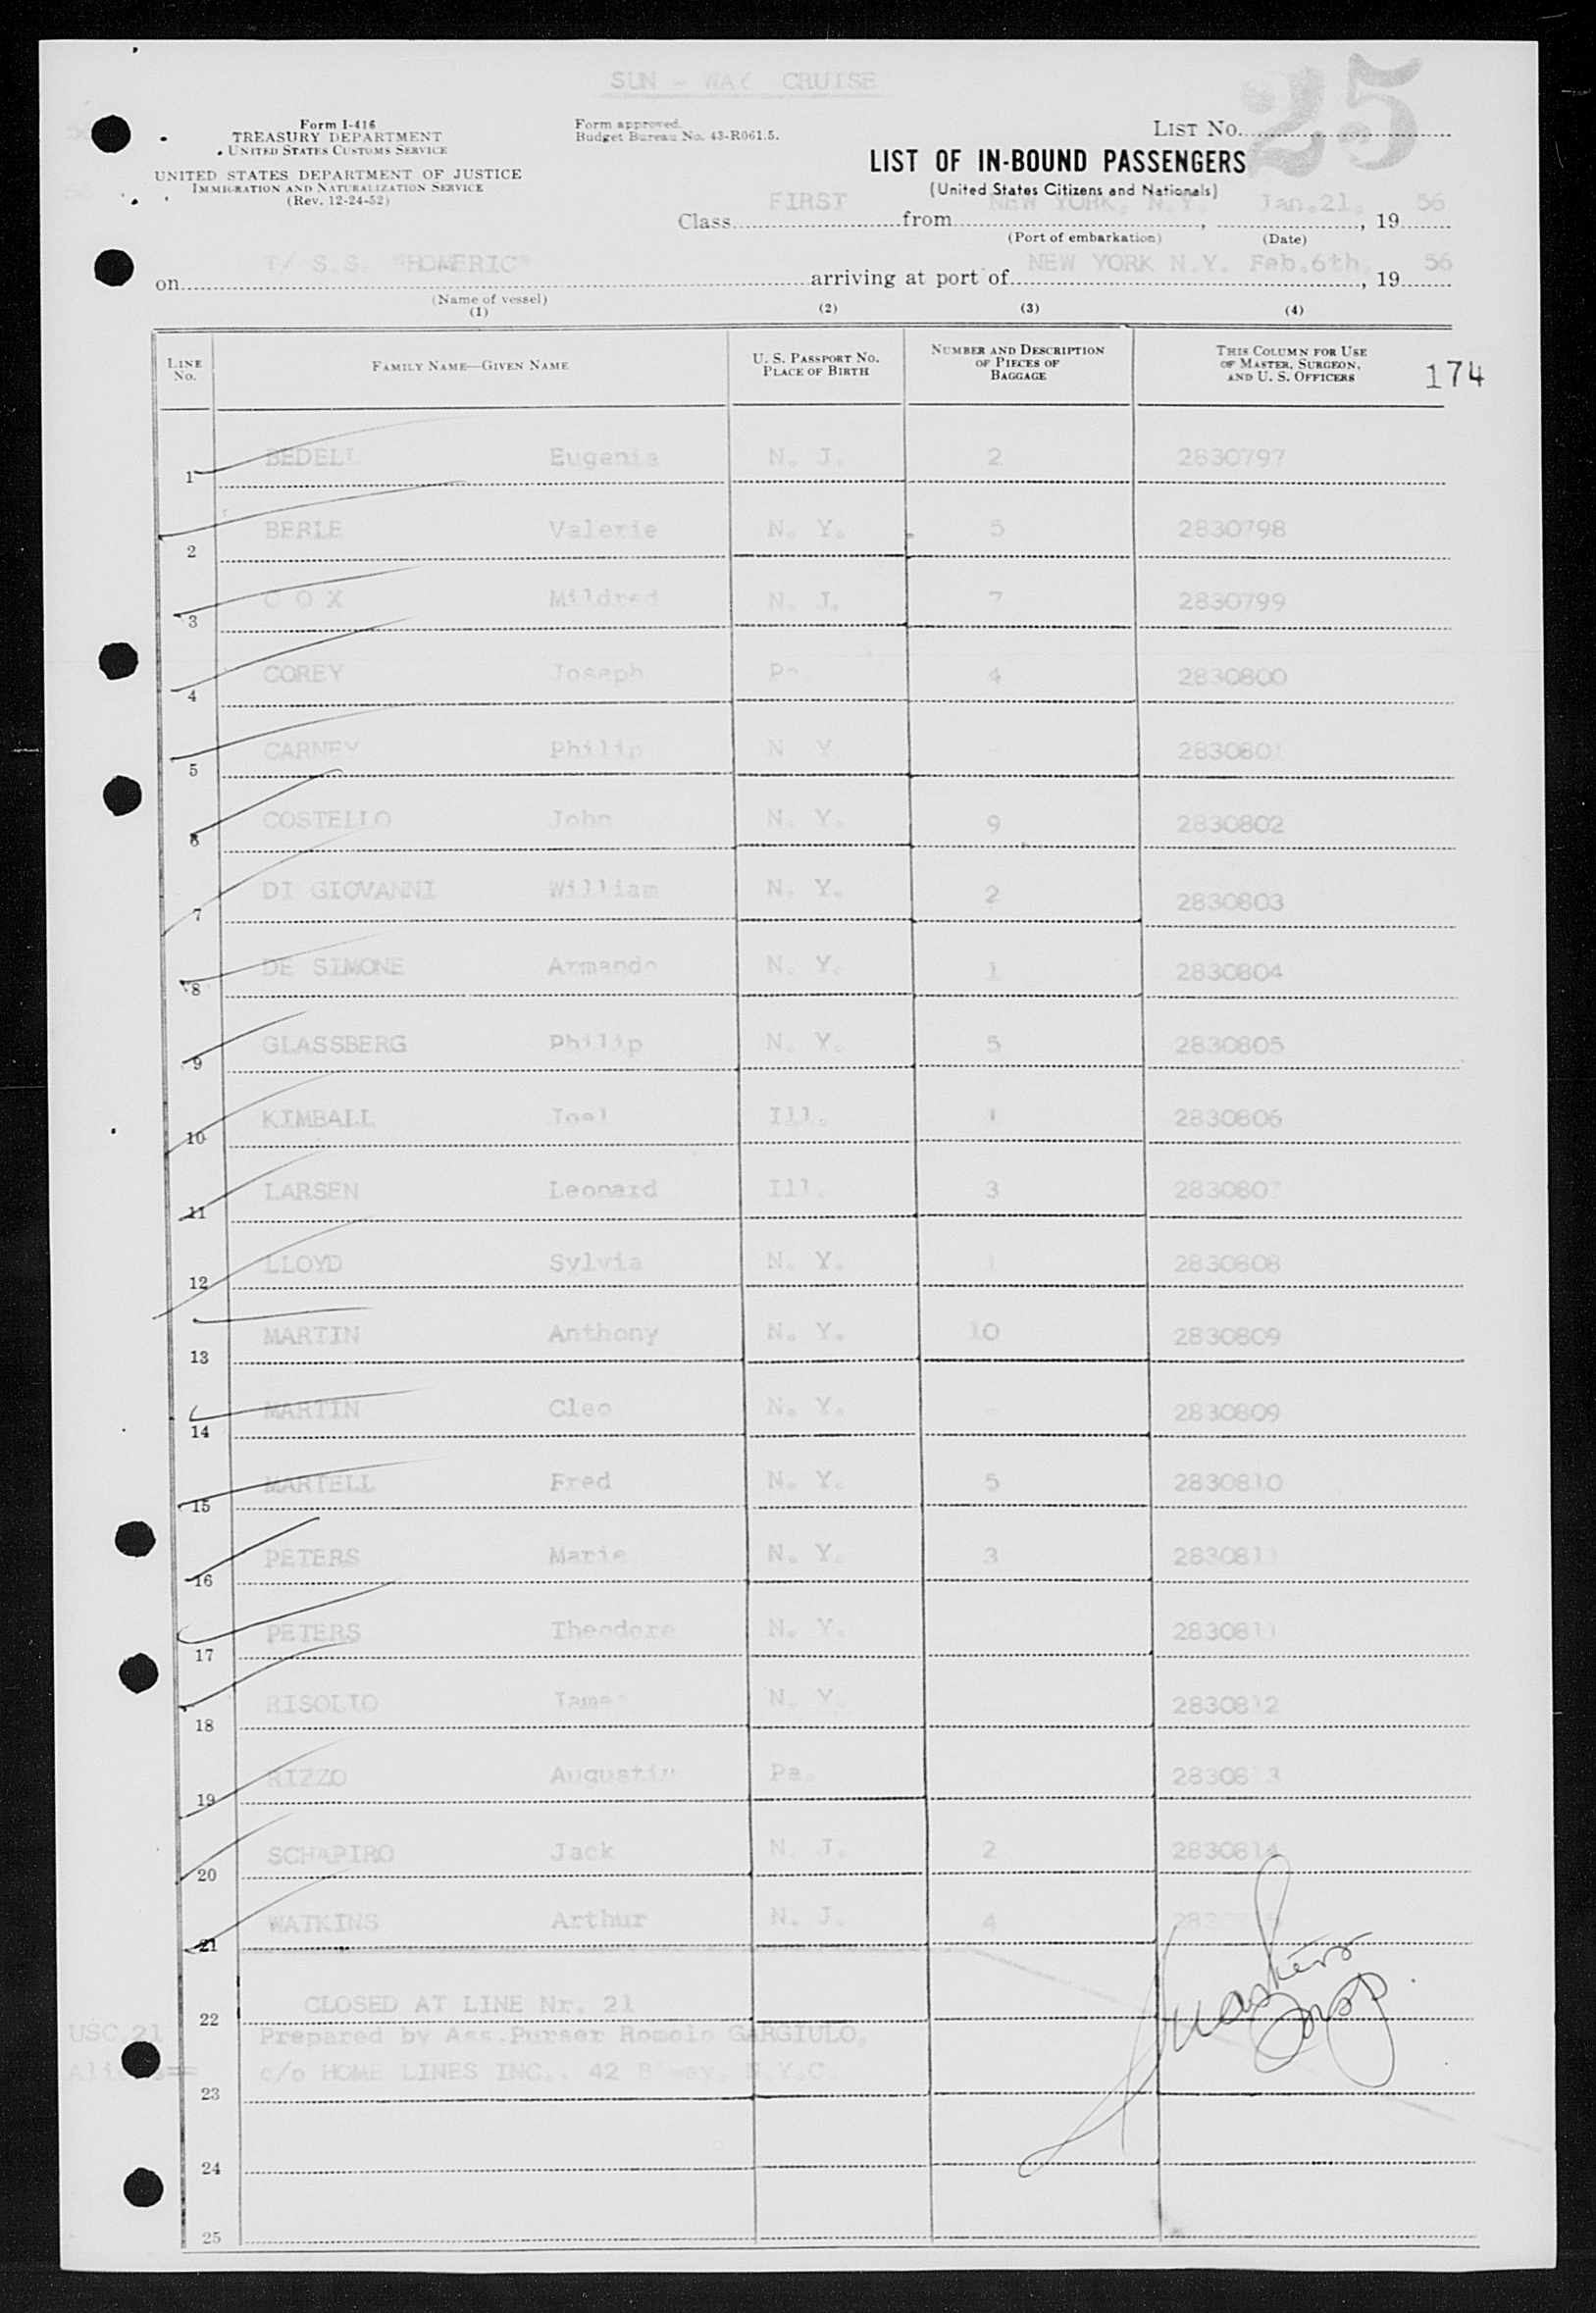 SUN - WAY CRUISE
25
Form I-416
TREASURY DEPARTMENT
UNITED STATES CUSTOMS SERVICE
UNITED STATES DEPARTMENT OF JUSTICE
IMMIGRATION AND NATURALIZATION SERVICE
(Rev. 12-24-52)
Form approved.
Budget Bureau No. 43-R061.5.
LIST NO.
LIST OF IN-BOUND PASSENGERS
(United States Citizens and Nationals)
Class FIRST from NEW YORK, N.Y. Jan.21, 19 56
(Port of embarkation) (Date)
on T/ S.S. "HOMERIC" arriving at port of NEW YORK N.Y. Feb.6th, 19 56
(Name of vessel)
(1) (2) (3) (4)
LINE NO. FAMILY NAME—GIVEN NAME U. S. PASSPORT NO. PLACE OF BIRTH NUMBER AND DESCRIPTION OF PIECES OF BAGGAGE THIS COLUMN FOR USE OF MASTER, SURGEON, AND U. S. OFFICERS 174
1 BEDELL Eugenia N. J. 2 2830797
2 BERLE Valerie N. Y. 5 2830798
3 C O X Mildred N. J. 7 2830799
4 COREY Joseph Pa. 4 2830800
5 CARNEY Philip N. Y. - 2830801
6 COSTELLO John N. Y. 9 2830802
7 DI GIOVANNI William N. Y. 2 2830803
8 DE SIMONE Armando N. Y. 1 2830804
9 GLASSBERG Philip N. Y. 5 2830805
10 KIMBALL Joel Ill. 2830806
11 LARSEN Leonard Ill. 3 2830807
12 LLOYD Sylvia N. Y. 1 2830808
13 MARTIN Anthony N. Y. 10 2830809
14 MARTIN Cleo N. Y. - 2830809
15 MARTELL Fred N. Y. 5 2830810
16 PETERS Marie N. Y. 3 2830811
17 PETERS Theodore N. Y. 2830811
18 RISOLIO N. Y. 2830812
19 RIZZO Augustin Pa. 2830813
20 SCHAPIRO Jack N. J. 2 2830814
21 WATKINS Arthur N. J. 4
22 CLOSED AT LINE Nr. 21
USC 21 Prepared by Ass.Purser Romolo GARGIULO,
Aliens== c/o HOME LINES INC., 42 B'way, N.Y.C.
23
24
25